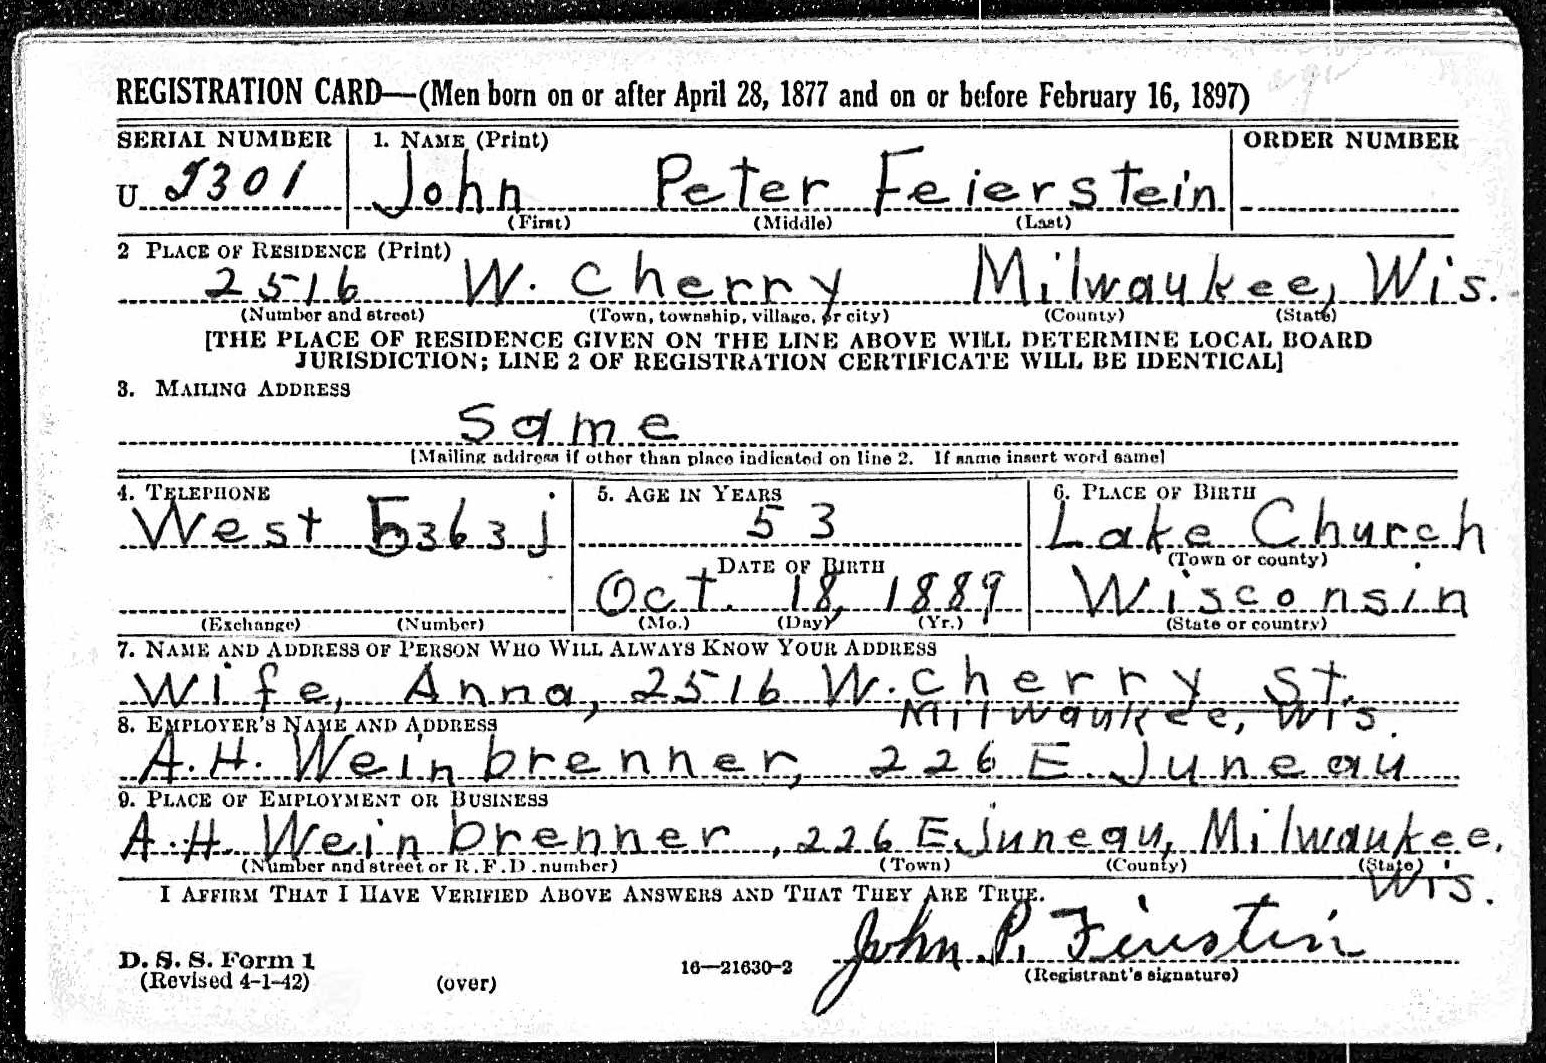 REGISTRATION CARD—(Men born on or after April 28, 1877 and on or before February 16, 1897)
SERIAL NUMBER 1. NAME (Print) ORDER NUMBER
U 5301 John Peter Feierstein
(First) (Middle) (Last)
2 PLACE OF RESIDENCE (Print)
2516 W. Cherry Milwaukee, Wis.
(Number and street) (Town, township, village, or city) (County) (State)
[THE PLACE OF RESIDENCE GIVEN ON THE LINE ABOVE WILL DETERMINE LOCAL BOARD
JURISDICTION; LINE 2 OF REGISTRATION CERTIFICATE WILL BE IDENTICAL]
3. MAILING ADDRESS
Same
[Mailing address if other than place indicated on line 2. If same insert word same]
4. TELEPHONE 5. AGE IN YEARS 6. PLACE OF BIRTH
West 5363 j 53 Lake Church
DATE OF BIRTH (Town or county)
Oct. 18, 1889 Wisconsin
(Exchange) (Number) (Mo.) (Day) (Yr.) (State or country)
7. NAME AND ADDRESS OF PERSON WHO WILL ALWAYS KNOW YOUR ADDRESS
Wife, Anna, 2516 W. Cherry St.
Milwaukee, Wis.
8. EMPLOYER'S NAME AND ADDRESS
A. H. Weinbrenner, 226 E. Juneau
9. PLACE OF EMPLOYMENT OR BUSINESS
A. H. Weinbrenner, 226 E. Juneau, Milwaukee,
(Number and street or R. F. D. number) (Town) (County) (State)
Wis.
I AFFIRM THAT I HAVE VERIFIED ABOVE ANSWERS AND THAT THEY ARE TRUE.
John P. Feierstein
D. S. S. Form 1
(Revised 4-1-42) (over) 16—21630-2 (Registrant's signature)